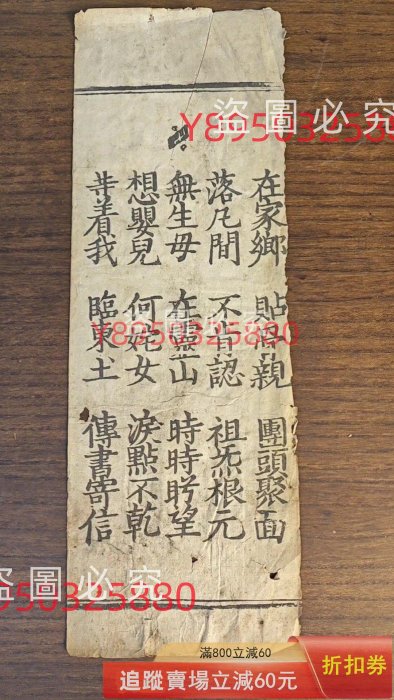 在家鄉 貼骨親 團頭聚面
落凢間 不肯認 祖炁根元
無生母 在靈山 時時盻望
想嬰兒 何姹女 淚點不乾
䒭着我 臨東土 傳書寄信
盜圖必究
Y8950325880
盜圖必究
Y8950325880
盜圖必究
950325880
滿800立減60
追蹤賣場立減60元
折扣券